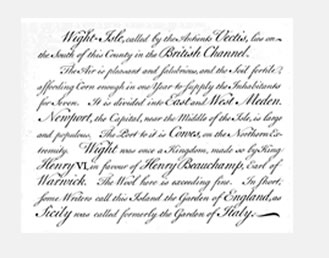 Wight-Isle, called by the Antients Vectis, lies on
the South of this County in the British Channel.
The Air is pleasant and salubrious, and the Soil fertile,
affording Corn enough in one Year to supply the Inhabitants
for Seven. It is divided into East and West Meden.
Newport, the Capital, near the Middle of the Isle, is large
and populous. The Port to it is Cowes, on the Northern Ex-
tremity. Wight was once a Kingdom, made so by King
Henry VI, in favour of Henry Beauchamp, Earl of
Warwick. The Wool here is exceeding fine. In short,
some Writers call this Island the Garden of England, as
Sicily was called formerly the Garden of Italy.